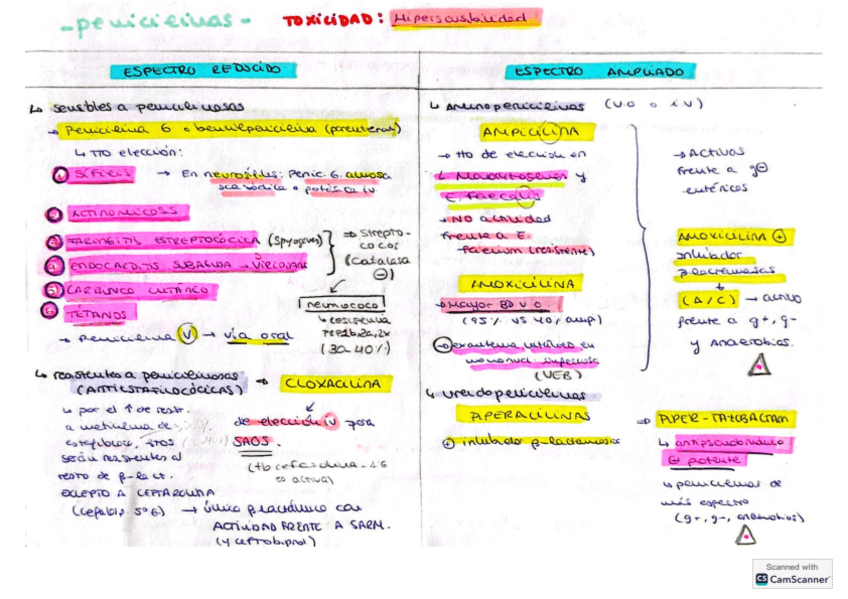 - penicilinas -
TOXICIDAD: Hipersensibilidad
ESPECTRO REDUCIDO
↳ sensibles a penicilinasas
→ Penicilina G o bencilpenicilina (parenteral)
↳ TTO elección:
① SÍFILIS → En neurosífilis: Penic. G. acuosa
sódica o potásica IV
② ACTINOMICOSIS
③ FARINGITIS ESTREPTOCÓCICA (Spyogenes)
④ ENDOCARDITIS SUBAGUDA → VIRIDANS
⇒ STREPTO-
COCOS
(catalasa
⊖)
⑤ CARBUNCO CUTÁNEO
⑥ TÉTANOS
neumococo
↳ resistencia
PBP1b, 2a, 2x
(30-40%)
→ Penicilina V → vía oral
↳ resistentes a penicilinasas
(ANTIESTAFILOCÓCICAS) → CLOXACILINA
↳ por el ↑ de resist.
a meticilina de
estafiloco, estos
serán resistentes al
resto de β-lact.
EXCEPTO A CEFTAROLINA
(cefalosp 5ªG) → único β-lactámico con
ACTIVIDAD FRENTE A SARM.
(y ceftobiprol)
de elección IV para
SAOS.
(tb cefazolina -1G
es activa)
ESPECTRO AMPLIADO
↳ Aminopenicilinas (v.o o iv)
AMPICILINA
→ tto de elección en
L. Monocytogenes y
E. faecalis
→ NO actividad
frente a E.
faecium (resistente)
→ Activas
frente a g⊖
entéricos
AMOXICILINA
→ Mayor BD v.o
(95% vs 40% amp)
→ exantema cutáneo en
mononucl. infecciosa
(VEB)
AMOXICILINA ⊕
inhibidor
β-lactamasas
↓
(A/C) → activo
frente g+, g-
y Anaerobios.
↳ Ureidopenicilinas
PIPERACILINAS
⊕ inhibidor β-lactamasas
⇒ PIPER-TAZOBACTAM
↳ antipseudomónico
⊕ potente
↳ penicilinas de
más espectro
(g+, g-, anaerobios)
Scanned with
CS CamScanner